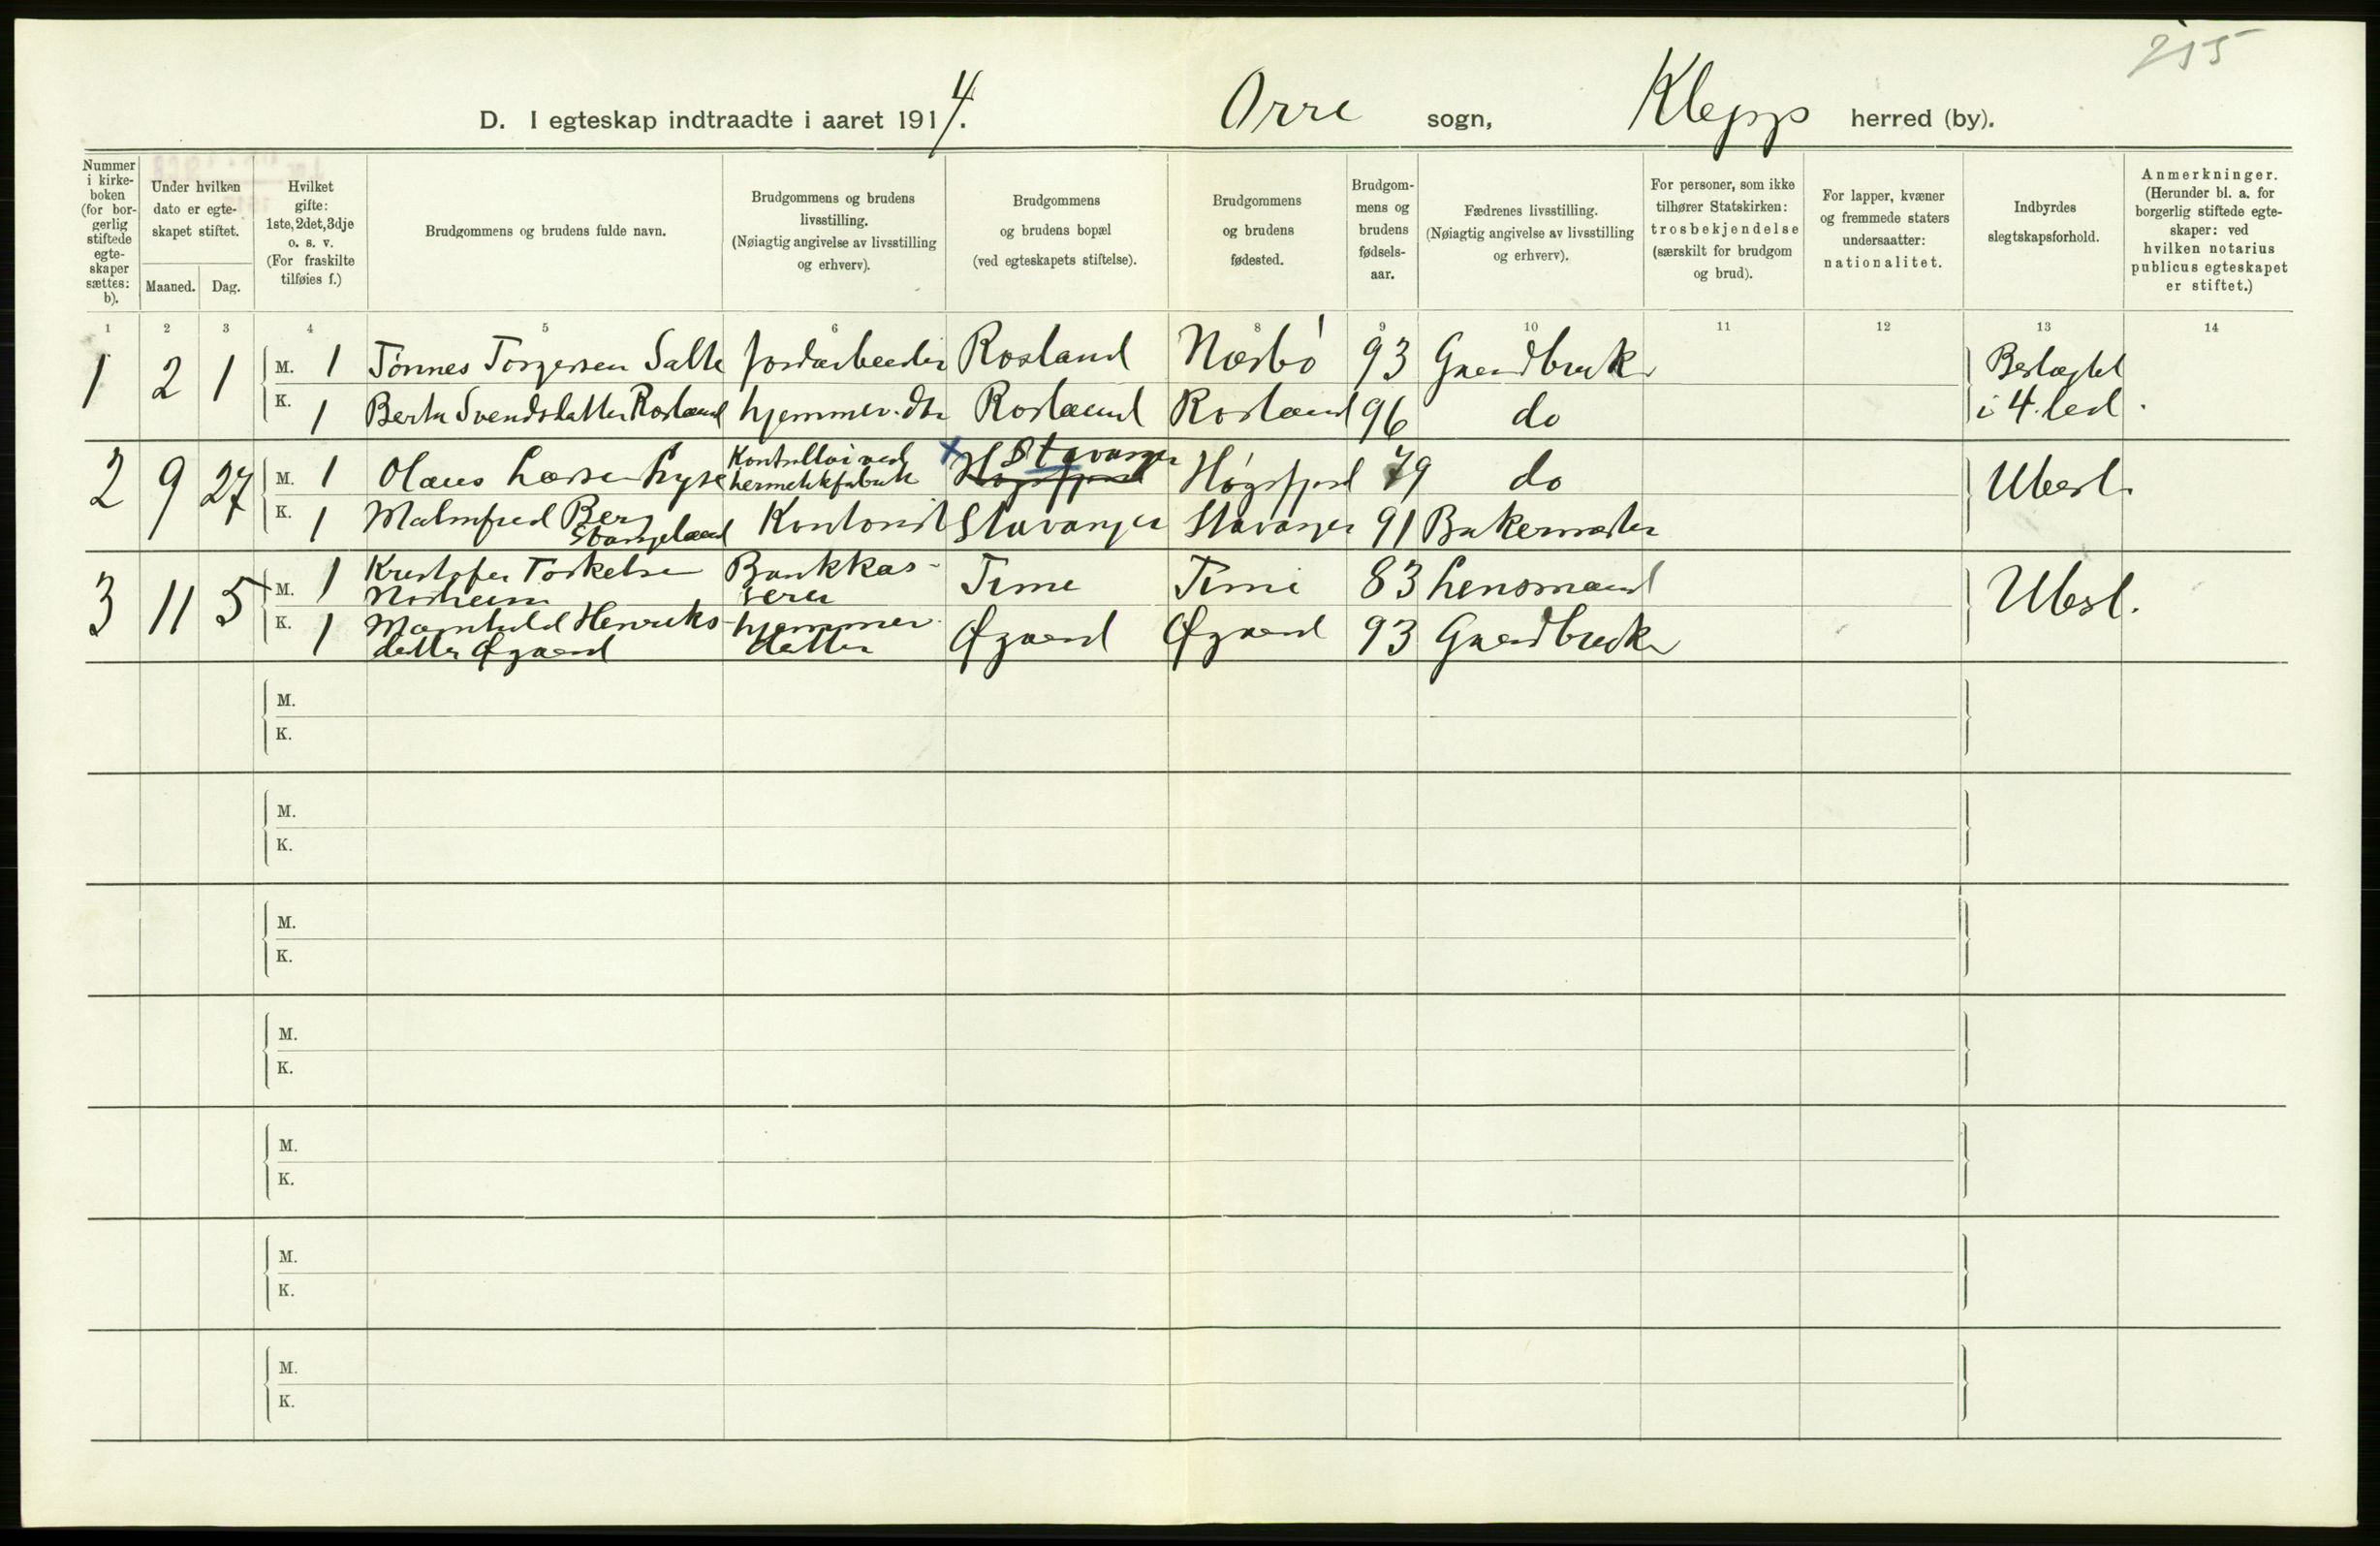 255
D. I egteskap indtraadte i aaret 1914.
Orre sogn, Klepp herred (by).
Nummer i kirke- boken (for bor- gerlig stiftede egte- skaper sættes: b).
Under hvilken dato er egte- skapet stiftet.
Maaned. Dag.
Hvilket gifte: 1ste, 2det, 3dje o. s. v. (For fraskilte tilføies f.)
Brudgommens og brudens fulde navn.
Brudgommens og brudens livsstilling. (Nøiagtig angivelse av livsstilling og erhverv).
Brudgommens og brudens bopæl (ved egteskapets stiftelse).
Brudgommens og brudens fødested.
Brudgom- mens og brudens fødsels- aar.
Fædrenes livsstilling. (Nøiagtig angivelse av livsstilling og erhverv).
For personer, som ikke tilhører Statskirken: trosbekjendelse (særskilt for brudgom og brud).
For lapper, kvæner og fremmede staters undersaatter: nationalitet.
Indbyrdes slegtskapsforhold.
Anmerkninger. (Herunder bl. a. for borgerlig stiftede egte- skaper: ved hvilken notarius publicus egteskapet er stiftet.)
1 2 3 4 5 6 8 9 10 11 12 13 14
1 2 1 M. 1 Tönnes Torgersen Salte jordarbeider Rosland Nærbö 93 Gaardbruk Beslægtet
K. 1 Berta Svendsdatter Rosland hjemmev. dtr Rosland Rosland 96 do i 4. led.
2 9 27 M. 1 Olaus Larsen Lyse Kontrollör ved hermetikfabrik x Høgsfjord Stavanger Høgsfjord 79 do Ubesl.
K. 1 Malmfred Berg Stangeland Kontorist Stavanger Stavanger 91 Bakermester
3 11 5 M. 1 Kristofer Torkelsen Norheim Bankkas- serer Time Time 83 Lensmand Ubesl.
K. 1 Magnhild Henriks- datter Øgaard hjemmev. datter Øgaard Øgaard 93 Gaardbruk
M.
K.
M.
K.
M.
K.
M.
K.
M.
K.
M.
K.
M.
K.